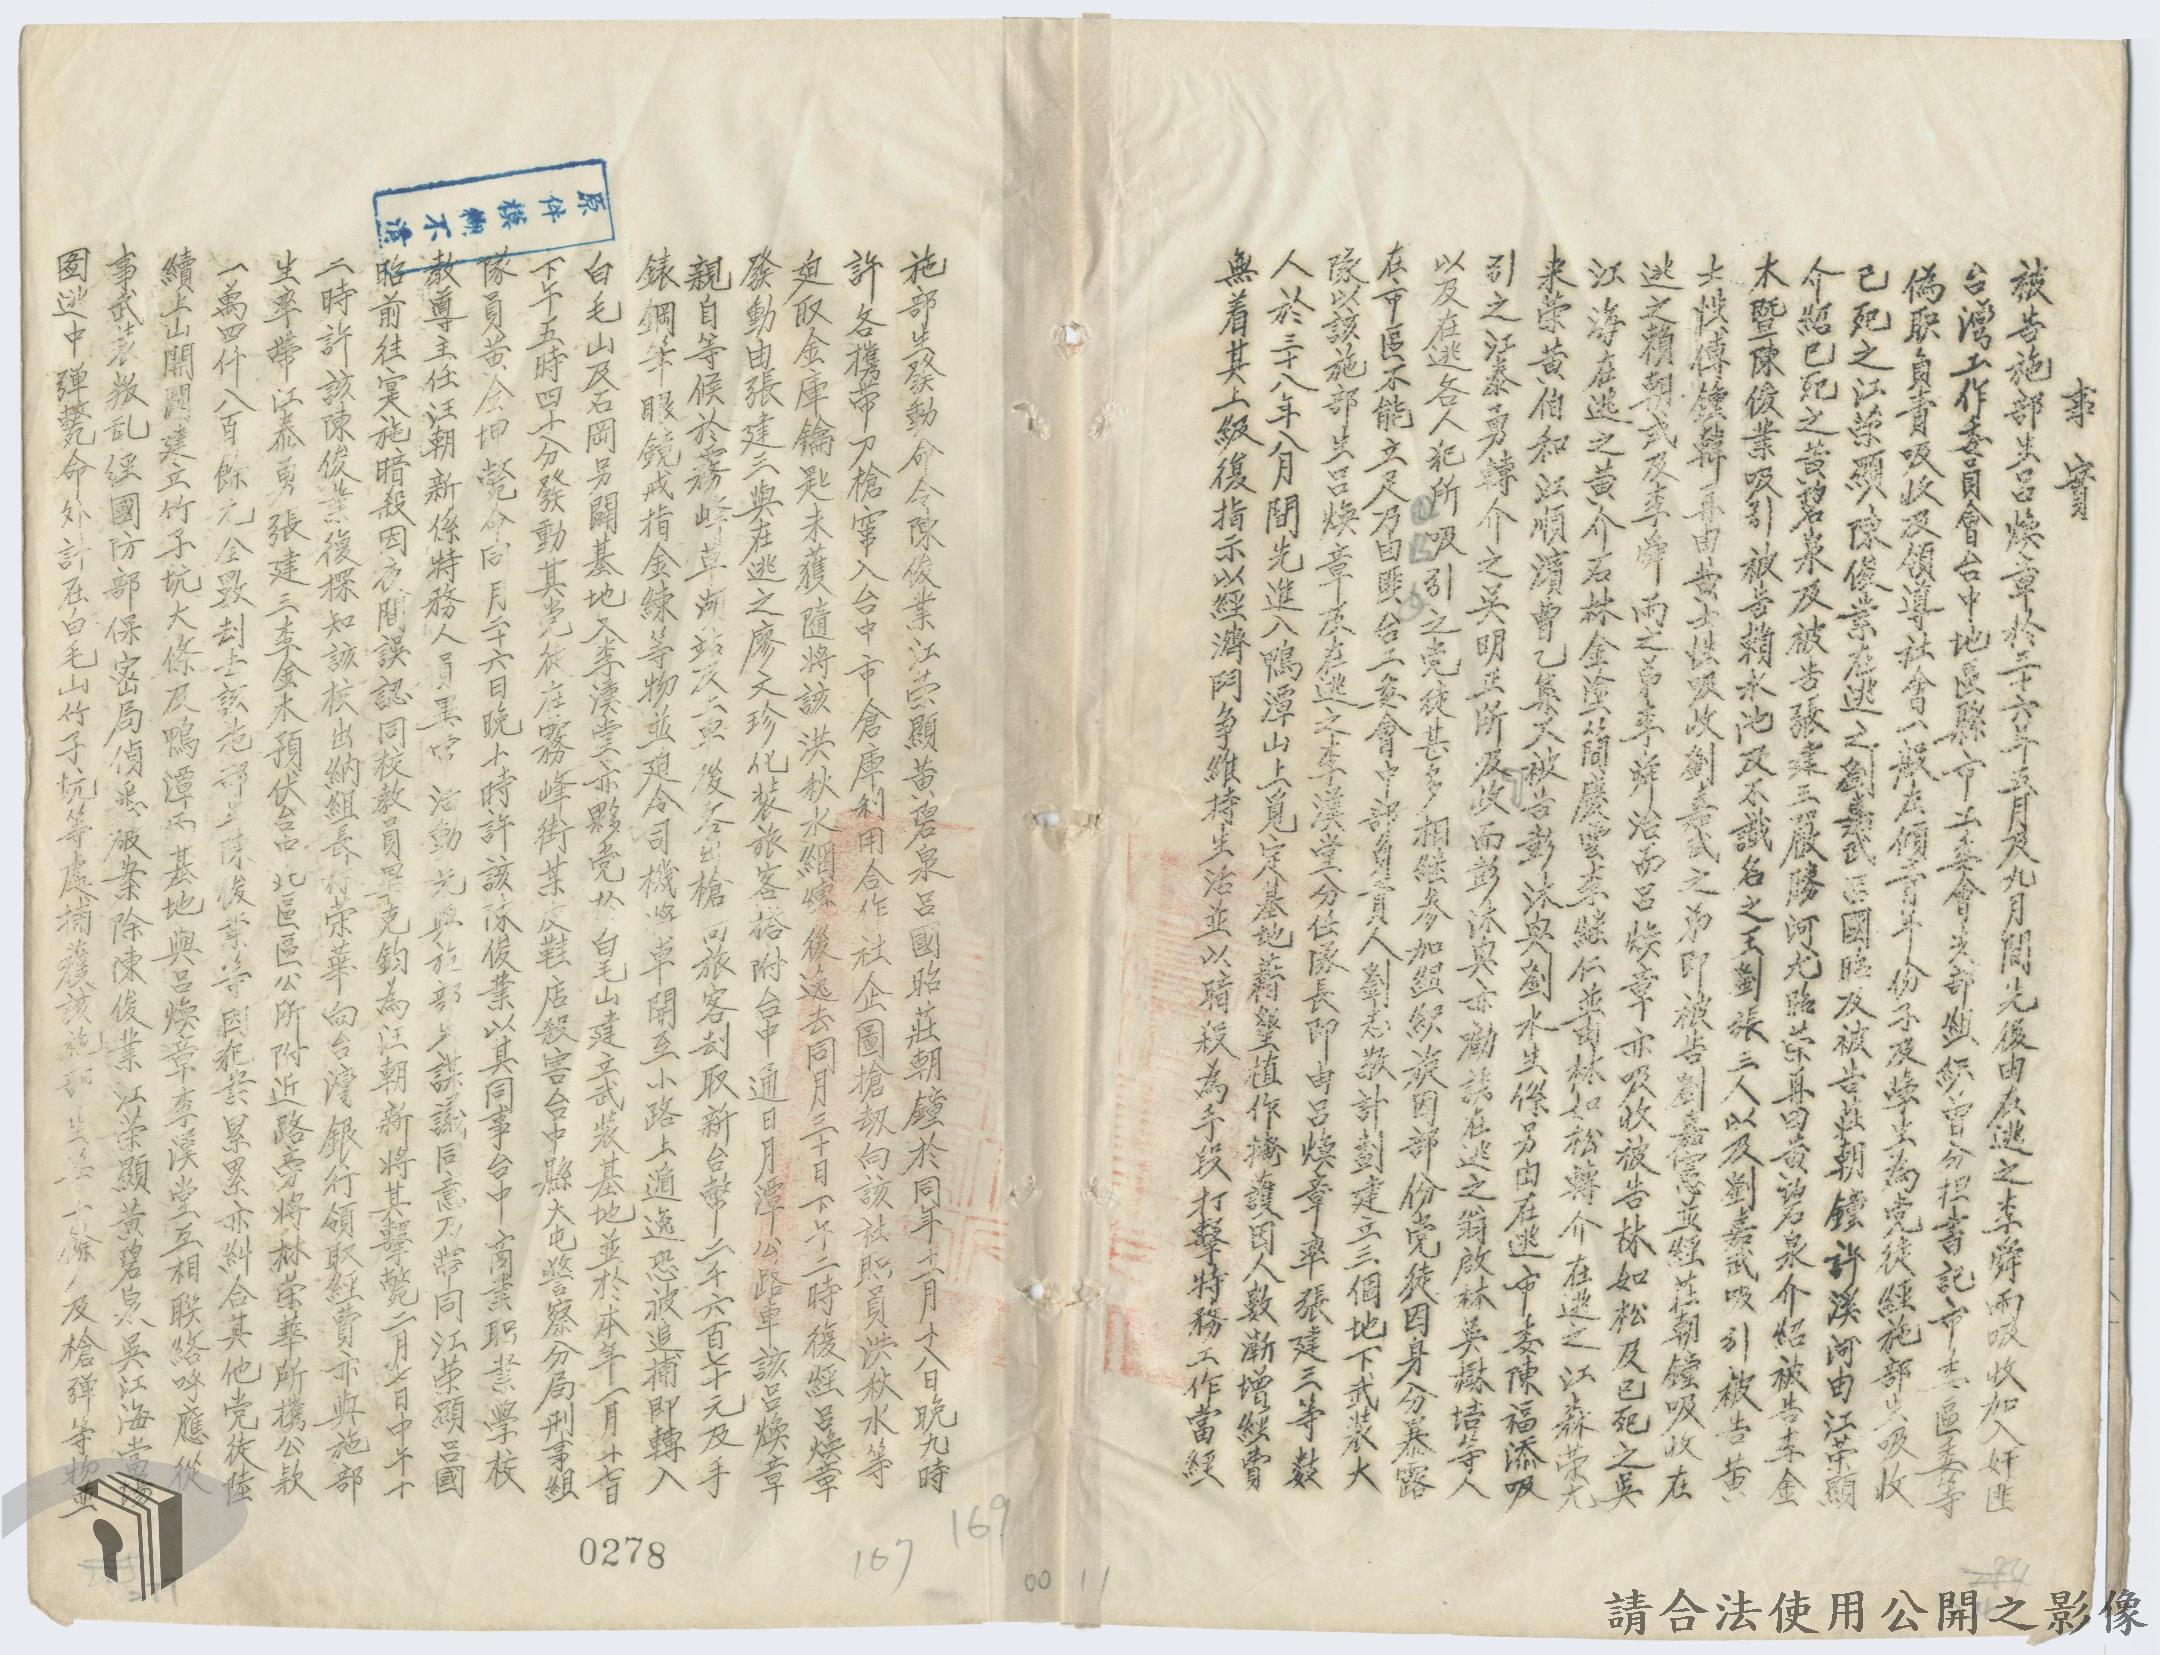 事實
被告施部生呂煥章於三十六年五月及九月間先後由在逃之李舜雨吸收加入奸匪
台灣工作委員會台中地區縣市工委會支部組織曾分担書記市委區委等
偽职負責吸收及領導社會一般左傾青年份子及學生為党徒經施部生吸收
已死之江榮顯陳俊業在逃之劉嘉武呂國昭及被告莊朝鐘許溪河由江榮顯
介紹已死之黃碧泉及被告張建三嚴勝河尤昭榮再由黃碧泉介紹被告李金
木暨陳俊業吸引被告賴水池及不識名之王劉張三人以及劉嘉武吸引被告黃
士性傅鐘韓再由黃士性吸收劉嘉武之弟即被告劉嘉憲並經莊朝鐘吸收在
逃之賴朝武及李舜雨之弟李舜治而呂煥章亦吸收被告林如松及已死之吳
江海在逃之黃介石林金塗簡慶雲李繼仁並由林如松轉介在逃之江森榮尤
来榮黃伯和江順濱曹乙集又被告彭沐與劉水生係另由在逃市委陳福添吸
引之江泰勇轉介之吳明正所及收而彭沐與亦勸誘在逃之翁啟林吳楙培等人
以及在逃各人犯所吸引之党徒甚多相継参加組織旋因部份党徒因身分暴露
在市區不能立足乃由匪台工委會中部負責人劉志敬計劃建立三個地下武裝大
隊以該施部生呂煥章及在逃之李漢堂分任隊長即由呂煥章率張建三等数
人於三十八年八月間先進入鴨潭山上覓定基地藉墾植作掩護因人数漸增経費
無着其上級復指示以經濟鬥争維持生活並以暗殺為手段打擊特務工作當經
施部生發動命令陳俊業江榮顯黃碧泉呂國昭莊朝鐘於同年十一月十八日晚九時
許各攜帶刀槍竄入台中市倉庫利用合作社企圖搶刼向該社职員洪秋水等
迫取金庫鑰匙未獲隨將該洪秋水綑縛後逸去同月三十日下午二時復經呂煥章
發動由張建三與在逃之廖天珍化装旅客搭附台中通日月潭公路車該呂煥章
親自等候於霧峰草湖站及上車後各出槍向旅客刦取新台幣二千六百七十元及手
錶鋼筆眼鏡戒指金鍊等物並迫令司機將車開至小路上遁逸恐被追捕即轉入
白毛山及石岡另闢基地又李漢堂亦夥党於白毛山建立武裝基地並於本年一月十七日
下午五時四十分發動其党徒在霧峰街某皮鞋店殺害台中縣大屯警察分局刑事組
隊員黃金坤斃命同月二十六日晚七時許該陳俊業以其同事台中商業职業學校
教導主任汪朝新係特務人員異常活動先與施部生謀議同意乃帶同江榮顯呂國
昭前往實施暗殺因夜間誤認同校教員畢克鈞為汪朝新將其擊斃二月七日中午十
二時許該陳俊業復探知該校出納組長林榮華向台灣銀行領取經費亦與施部
生率帶江泰勇張建三李金木預伏台中北區區公所附近路旁將林榮華所攜公款
一萬四仟八百餘元全數刦去該施部生陳俊業等因犯案累累亦糾合其他党徒陸
續上山開闢建立竹子坑大條及鴨潭等基地與呂煥章李漢堂互相联絡呼應從
事武装叛乱經國防部保密局偵悉破案除陳俊業江榮顯黃碧泉吳江海當場
圖逃中彈斃命外計在白毛山竹子坑等處捕獲該施部生等十餘人及槍弹等物並
原件模糊不清
0278
167
169
00 11
284
請合法使用公開之影像